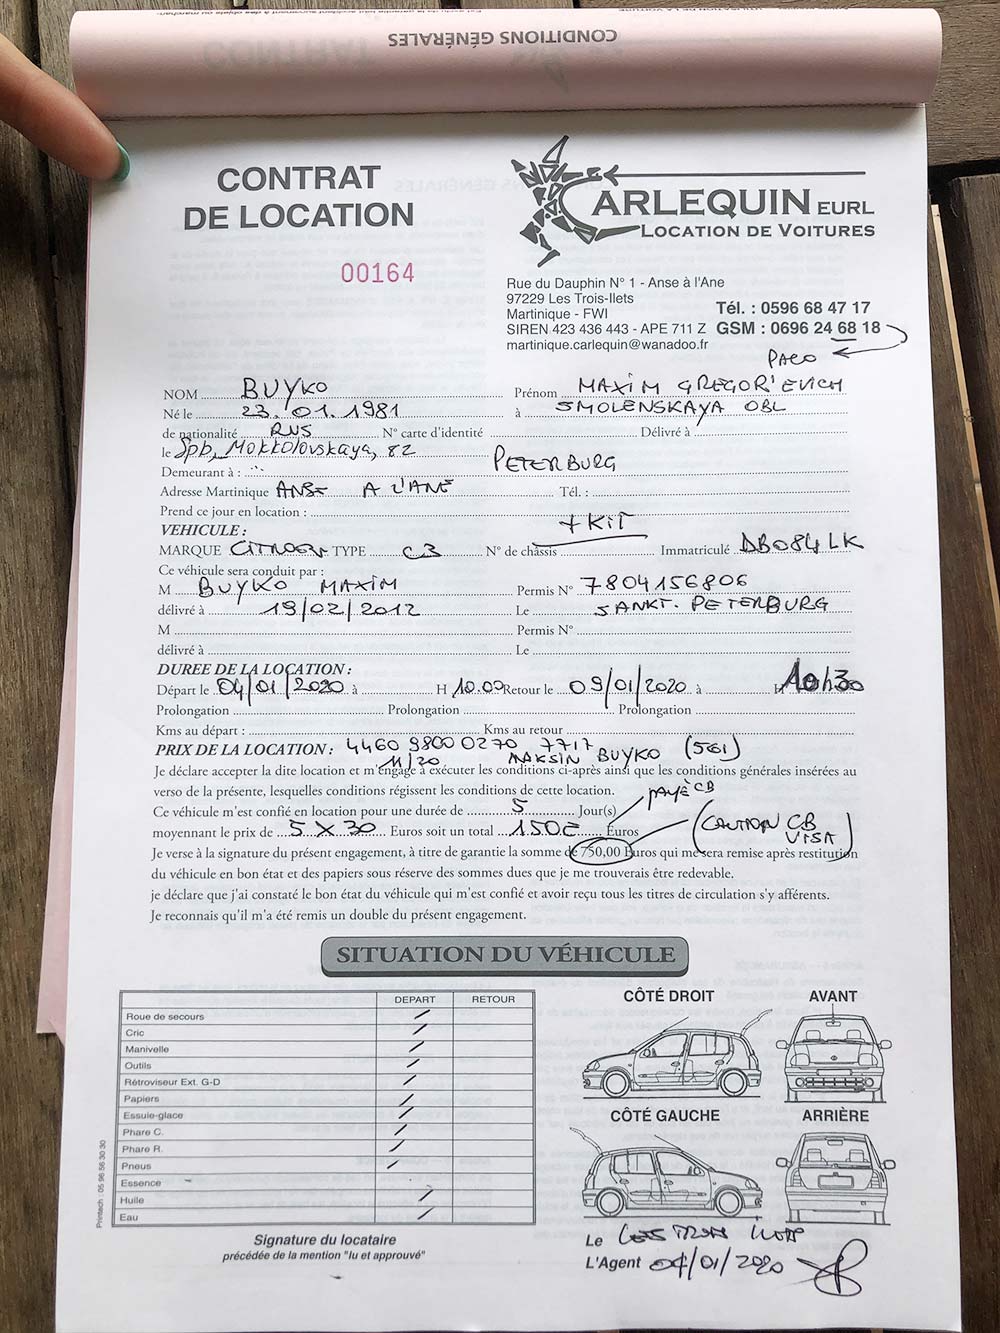 CONDITIONS GÉNÉRALES
CONTRAT
DE LOCATION
00164
CARLEQUIN EURL
LOCATION DE VOITURES
Rue du Dauphin N° 1 - Anse à l'Ane
97229 Les Trois-Ilets
Martinique - FWI
SIREN 423 436 443 - APE 711 Z
martinique.carlequin@wanadoo.fr
Tél. : 0596 68 47 17
GSM : 0696 24 68 18
PACO
NOM BUYKO Prénom MAXIM GREGOR'EVICH
Né le 23.01.1981 à SMOLENSKAYA OBL
de nationalité RUS N° carte d'identité Délivré à
le Spb, Mokkolovskaya, 82
Demeurant à : PETERBURG
Adresse Martinique ANSE A L'ANE Tél. :
Prend ce jour en location :
VEHICULE : + KIT
MARQUE CITROEN TYPE C3 N° de châssis Immatriculé DB084LK
Ce véhicule sera conduit par :
M BUYKO MAXIM Permis N° 7804156806
délivré à 19/02/2012 Le SANKT. PETERBURG
M Permis N°
délivré à Le
DUREE DE LA LOCATION :
Départ le 04/01/2020 à H 10.00 Retour le 09/01/2020 à H 10h30
Prolongation Prolongation Prolongation
Kms au départ : Kms au retour
PRIX DE LA LOCATION : 4460 9800 0270 7717
11/20 MAKSIN BUYKO (561)
Je déclare accepter la dite location et m'engage à exécuter les conditions ci-après ainsi que les conditions générales insérées au
verso de la présente, lesquelles conditions régissent les conditions de cette location.
Ce véhicule m'est confié en location pour une durée de 5 Jour(s) payé CB
moyennant le prix de 5 X 30 Euros soit un total 150€ Euros (CAUTION CB VISA)
Je verse à la signature du présent engagement, à titre de garantie la somme de 750,00 Euros qui me sera remise après restitution
du véhicule en bon état et des papiers sous réserve des sommes dues que je me trouverais être redevable.
je déclare que j'ai constaté le bon état du véhicule qui m'est confié et avoir reçu tous les titres de circulation s'y afférents.
Je reconnais qu'il m'a été remis un double du présent engagement.
SITUATION DU VÉHICULE
DEPART RETOUR
Roue de secours /
Cric /
Manivelle /
Outils /
Rétroviseur Ext. G-D /
Papiers /
Essuie-glace /
Phare C. /
Phare R. /
Pneus /
Essence
Huile /
Eau /
CÔTÉ DROIT AVANT
CÔTÉ GAUCHE ARRIÈRE
Printech : 05 96 56 30 30
Signature du locataire
précédée de la mention "lu et approuvé"
Le LES TROIS ILETS
L'Agent 04/01/2020